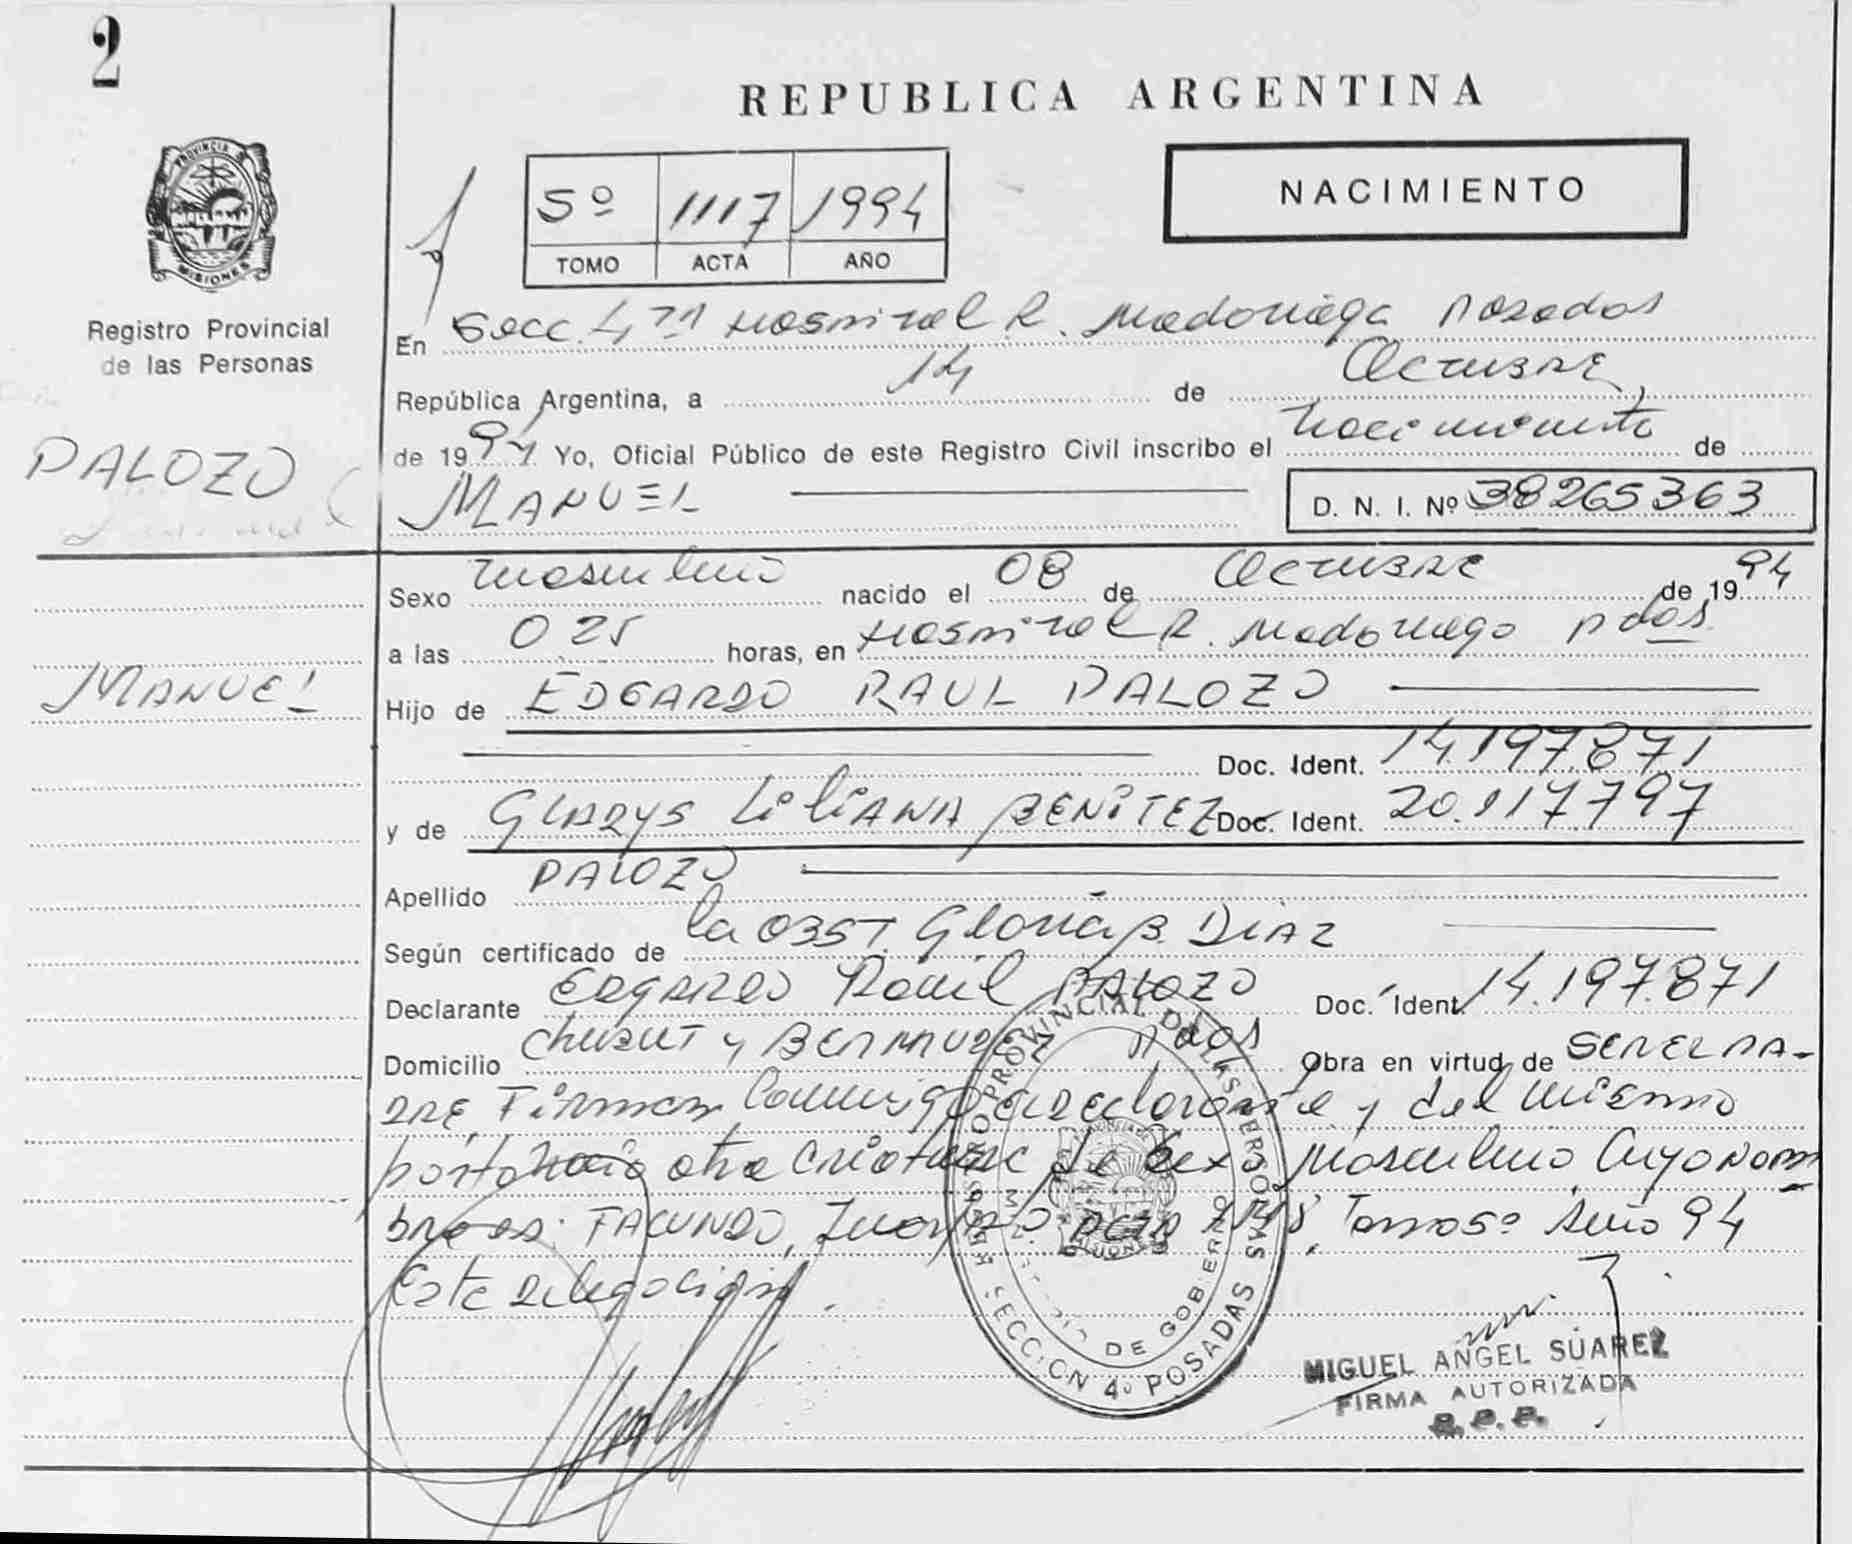 2
REPUBLICA ARGENTINA
PROVINCIA DE
MISIONES
Registro Provincial
de las Personas
5º 1117 1994
TOMO ACTA AÑO
NACIMIENTO
En Secc. 4ta Hospital R. Madariaga Posadas
República Argentina, a 14 de Octubre
de 1994 Yo, Oficial Público de este Registro Civil inscribo el Nacimiento de
PALOZO
MANUEL
D. N. I. Nº 38265363
Sexo masculino nacido el 08 de Octubre de 1994
a las 0 25 horas, en Hospital R. Madariaga Pdas
MANUEL
Hijo de EDGARDO RAUL PALOZO
Doc. Ident. 14.197.871
y de GLADYS LILIANA BENITEZ Doc. Ident. 20.117.797
Apellido PALOZO
Según certificado de la OBST. Gloria B. DIAZ
Declarante EDGARDO Raul PALOZO Doc. Ident. 14.197.871
Domicilio Chubut y BERMUDEZ Pdas Obra en virtud de SER EL PA-
DRE, Firman Conmigo el declarante y del mismo
parto nacio otra criatura de sexo masculino cuyo nom
bre es: FACUNDO, Acta 1118, Tomo 5º Año 94
Este delegacion
REGISTRO PROVINCIAL DE LAS PERSONAS
DE GOBIERNO
SECCION 4º POSADAS
MIGUEL ANGEL SUAREZ
FIRMA AUTORIZADA
R. P. P.